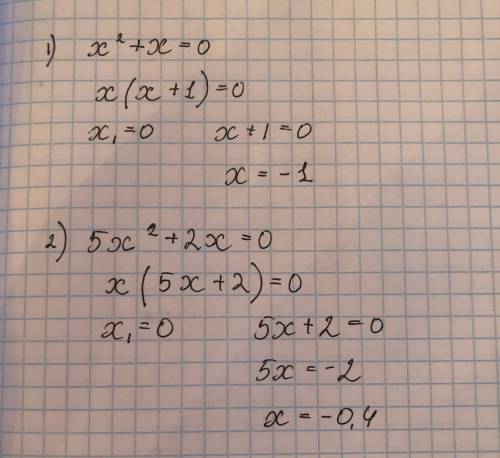 1) x² + x = 0
x(x + 1) = 0
x₁ = 0 x + 1 = 0
x = -1
2) 5x² + 2x = 0
x(5x + 2) = 0
x₁ = 0 5x + 2 = 0
5x = -2
x = -0,4